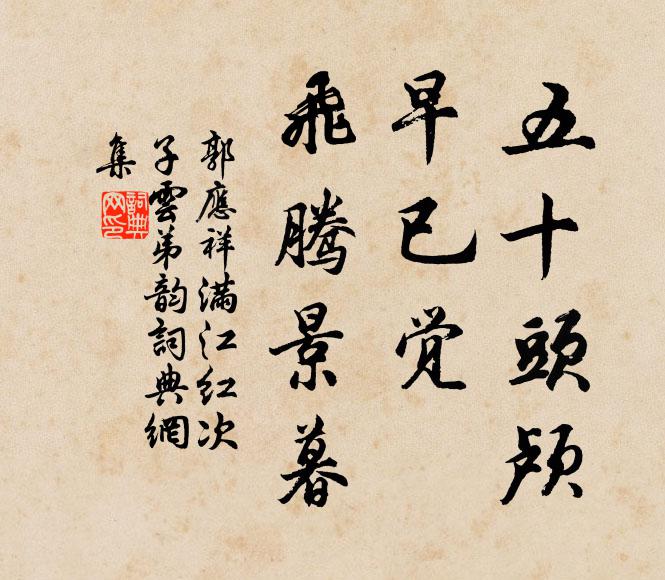 五十頭顱
早已觉
飛騰景暮
郭應祥滿江紅次
子雲弟韵詞典網
集
詞典
网印